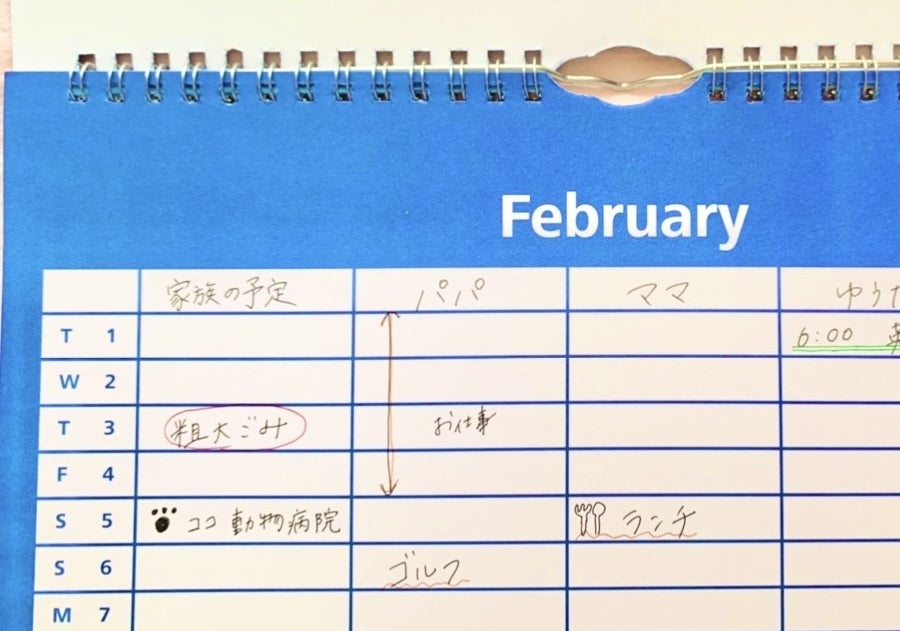 February
家族の予定 パパ ママ ゆうた
T 1 6:00
W 2
T 3 粗大ごみ お仕事
F 4
S 5 ココ 動物病院 ランチ
S 6 ゴルフ
M 7